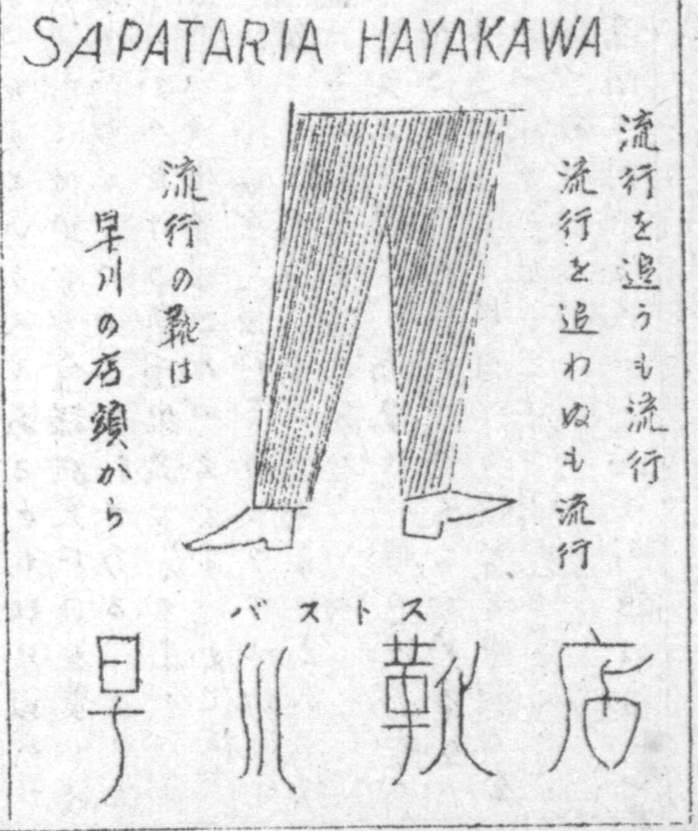 SAPATARIA HAYAKAWA
流行を追うも流行
流行を追わぬも流行
流行の靴は
早川の店頭から
バストス
早川靴店